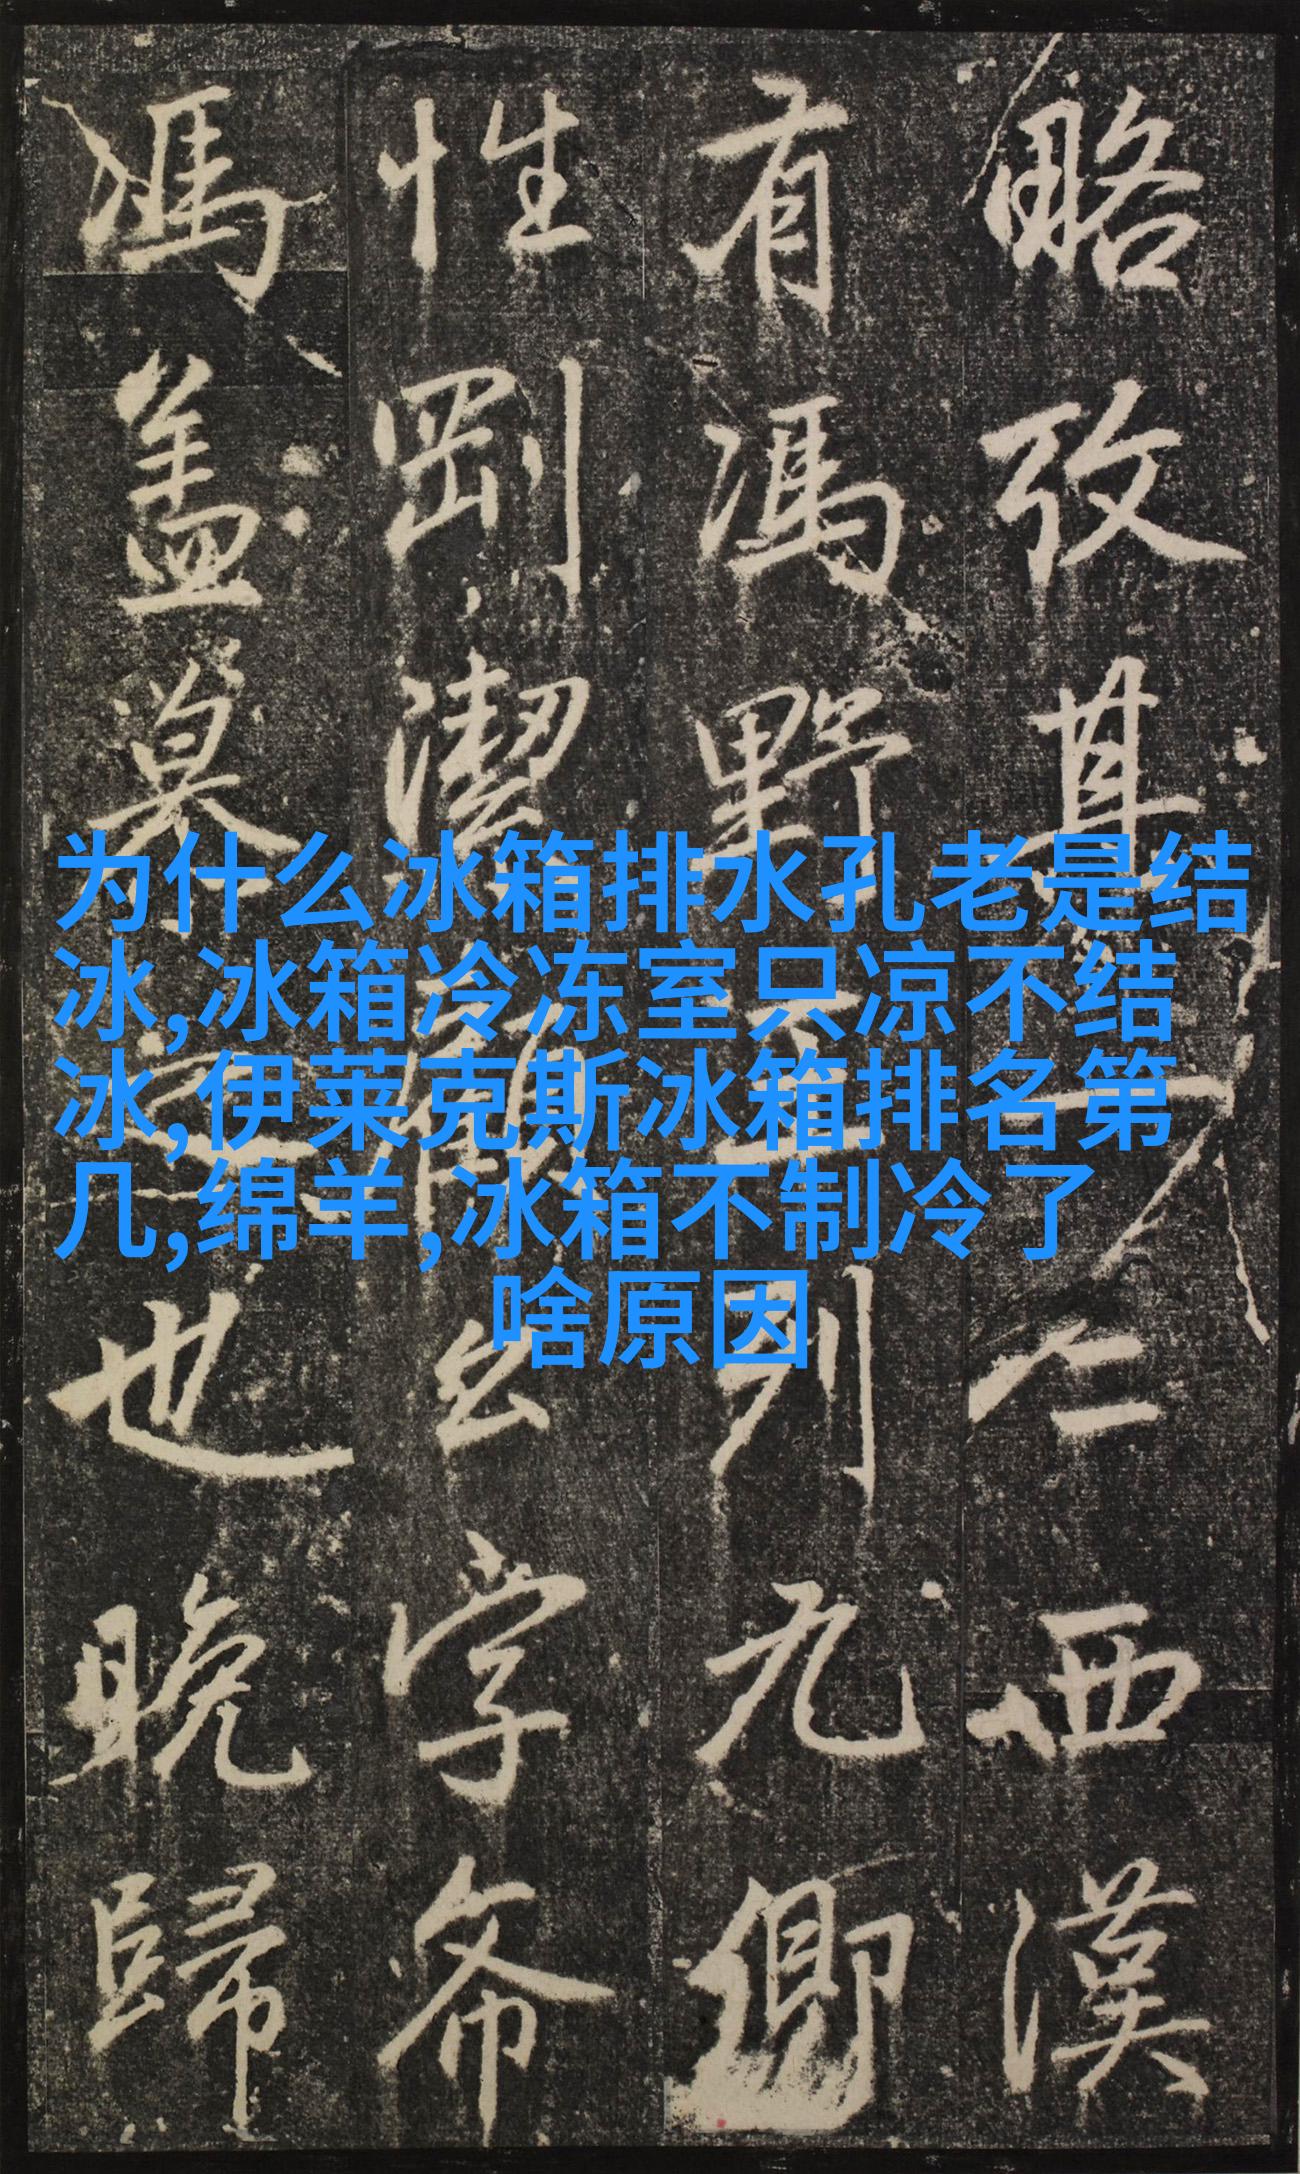 略攷其人仁西漢
有馮野王列九卿
性剛潔
馮盖萛之也晚歸
为什么冰箱排水孔老是结
冰,冰箱冷冻室只凉不结
冰,伊莱克斯冰箱排名第
几,绵羊,冰箱不制冷了
啥原因